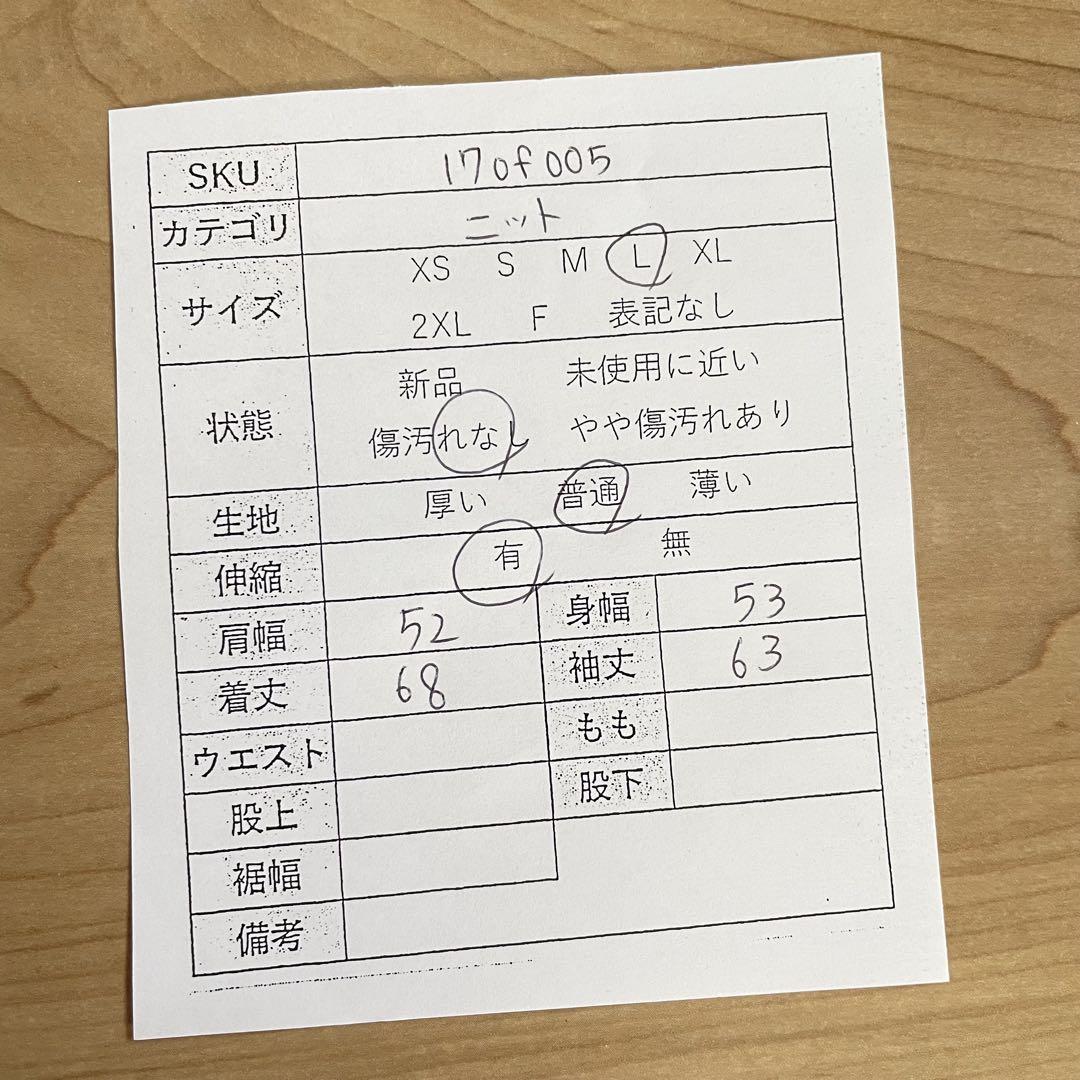 SKU 170f005
カテゴリ ニット
サイズ XS S M L XL
2XL F 表記なし
状態 新品 未使用に近い
傷汚れなし やや傷汚れあり
生地 厚い 普通 薄い
伸縮 有 無
肩幅 52 身幅 53
着丈 68 袖丈 63
ウエスト もも
股上 股下
裾幅
備考